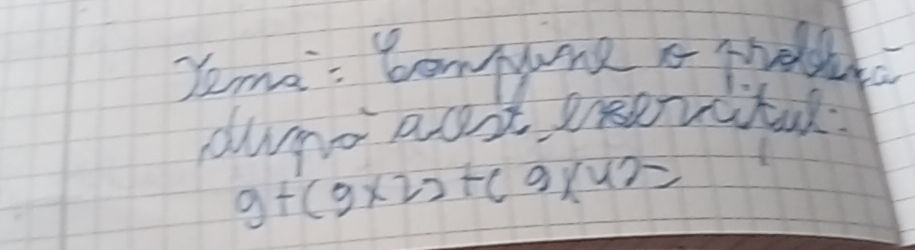 Temă: Compune o problemă
după acest exercițiul:
9+(9x2)+(9x4)=